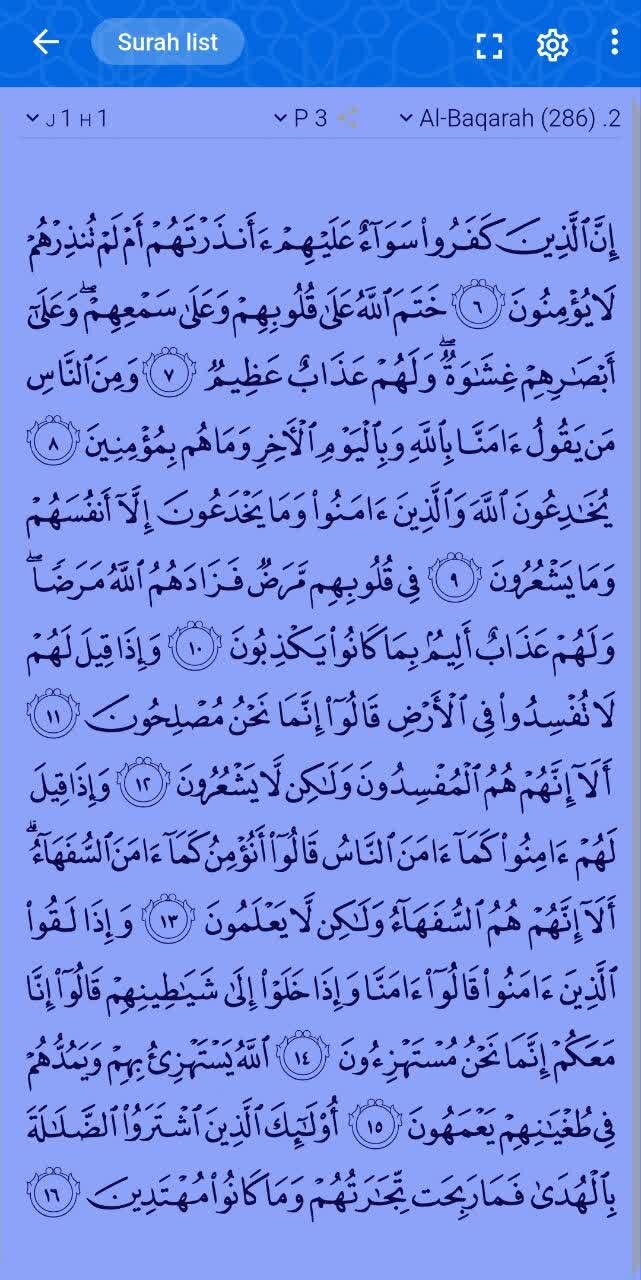 Surah list
J 1 H 1
P 3
Al-Baqarah (286) .2
إِنَّ ٱلَّذِينَ كَفَرُوا۟ سَوَآءٌ عَلَيْهِمْ ءَأَنذَرْتَهُمْ أَمْ لَمْ تُنذِرْهُمْ
لَا يُؤْمِنُونَ ٦ خَتَمَ ٱللَّهُ عَلَىٰ قُلُوبِهِمْ وَعَلَىٰ سَمْعِهِمْ ۖ وَعَلَىٰٓ
أَبْصَـٰرِهِمْ غِشَـٰوَةٌ ۖ وَلَهُمْ عَذَابٌ عَظِيمٌ ٧ وَمِنَ ٱلنَّاسِ
مَن يَقُولُ ءَامَنَّا بِٱللَّهِ وَبِٱلْيَوْمِ ٱلْـَٔاخِرِ وَمَا هُم بِمُؤْمِنِينَ ٨
يُخَـٰدِعُونَ ٱللَّهَ وَٱلَّذِينَ ءَامَنُوا۟ وَمَا يَخْدَعُونَ إِلَّآ أَنفُسَهُمْ
وَمَا يَشْعُرُونَ ٩ فِى قُلُوبِهِم مَّرَضٌ فَزَادَهُمُ ٱللَّهُ مَرَضًا ۖ
وَلَهُمْ عَذَابٌ أَلِيمٌۢ بِمَا كَانُوا۟ يَكْذِبُونَ ١٠ وَإِذَا قِيلَ لَهُمْ
لَا تُفْسِدُوا۟ فِى ٱلْأَرْضِ قَالُوٓا۟ إِنَّمَا نَحْنُ مُصْلِحُونَ ١١
أَلَآ إِنَّهُمْ هُمُ ٱلْمُفْسِدُونَ وَلَـٰكِن لَّا يَشْعُرُونَ ١٢ وَإِذَا قِيلَ
لَهُمْ ءَامِنُوا۟ كَمَآ ءَامَنَ ٱلنَّاسُ قَالُوٓا۟ أَنُؤْمِنُ كَمَآ ءَامَنَ ٱلسُّفَهَآءُ ۗ
أَلَآ إِنَّهُمْ هُمُ ٱلسُّفَهَآءُ وَلَـٰكِن لَّا يَعْلَمُونَ ١٣ وَإِذَا لَقُوا۟
ٱلَّذِينَ ءَامَنُوا۟ قَالُوٓا۟ ءَامَنَّا وَإِذَا خَلَوْا۟ إِلَىٰ شَيَـٰطِينِهِمْ قَالُوٓا۟ إِنَّا
مَعَكُمْ إِنَّمَا نَحْنُ مُسْتَهْزِءُونَ ١٤ ٱللَّهُ يَسْتَهْزِئُ بِهِمْ وَيَمُدُّهُمْ
فِى طُغْيَـٰنِهِمْ يَعْمَهُونَ ١٥ أُو۟لَـٰٓئِكَ ٱلَّذِينَ ٱشْتَرَوُا۟ ٱلضَّلَـٰلَةَ
بِٱلْهُدَىٰ فَمَا رَبِحَت تِّجَـٰرَتُهُمْ وَمَا كَانُوا۟ مُهْتَدِينَ ١٦